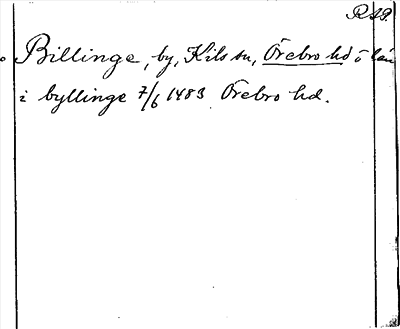 Billinge, by, Kils sn, Örebro hd o län
i byllinge 7/6 1483 Örebro hd.